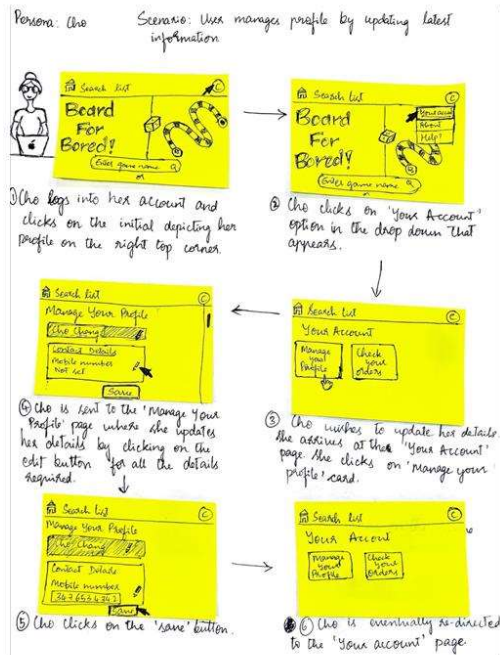 Persona: Cho Scenario: User manages profile by updating latest
information
Search list C
Board
For
Bored!
Enter game name
or
① Cho logs into her account and
clicks on the initial depicting her
profile on the right top corner.
Search list C
Board
For
Bored!
Your acc
About
Help?
Enter game name
or
② Cho clicks on 'Your Account'
option in the drop down that
appears.
Search list C
Your Account
Manage
your
Profile
Check
your
orders
③ Cho wishes to update her details.
She arrives at the 'Your Account'
page. She clicks on 'Manage your
profile' card.
Search list C
Manage Your Profile
Cho Chang
Contact Details
Mobile number
Not set
Save
④ Cho is sent to the 'Manage Your
Profile' page where she updates
her details by clicking on the
edit button for all the details
required.
Search list C
Manage Your Profile
Cho Chang
Contact Details
Mobile number
Save
⑤ Cho clicks on the 'save' button.
Search list C
Your Account
Manage
Your
Profile
Check
Your
Orders
⑥ Cho is eventually re-directed
to the 'Your account' page.